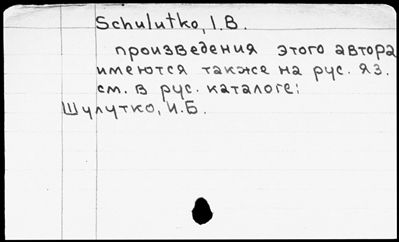 Schulutko, I.B.
произведения этого автора
имеются также на рус. яз.
см. в рус. каталоге:
Шулутко, И.Б.